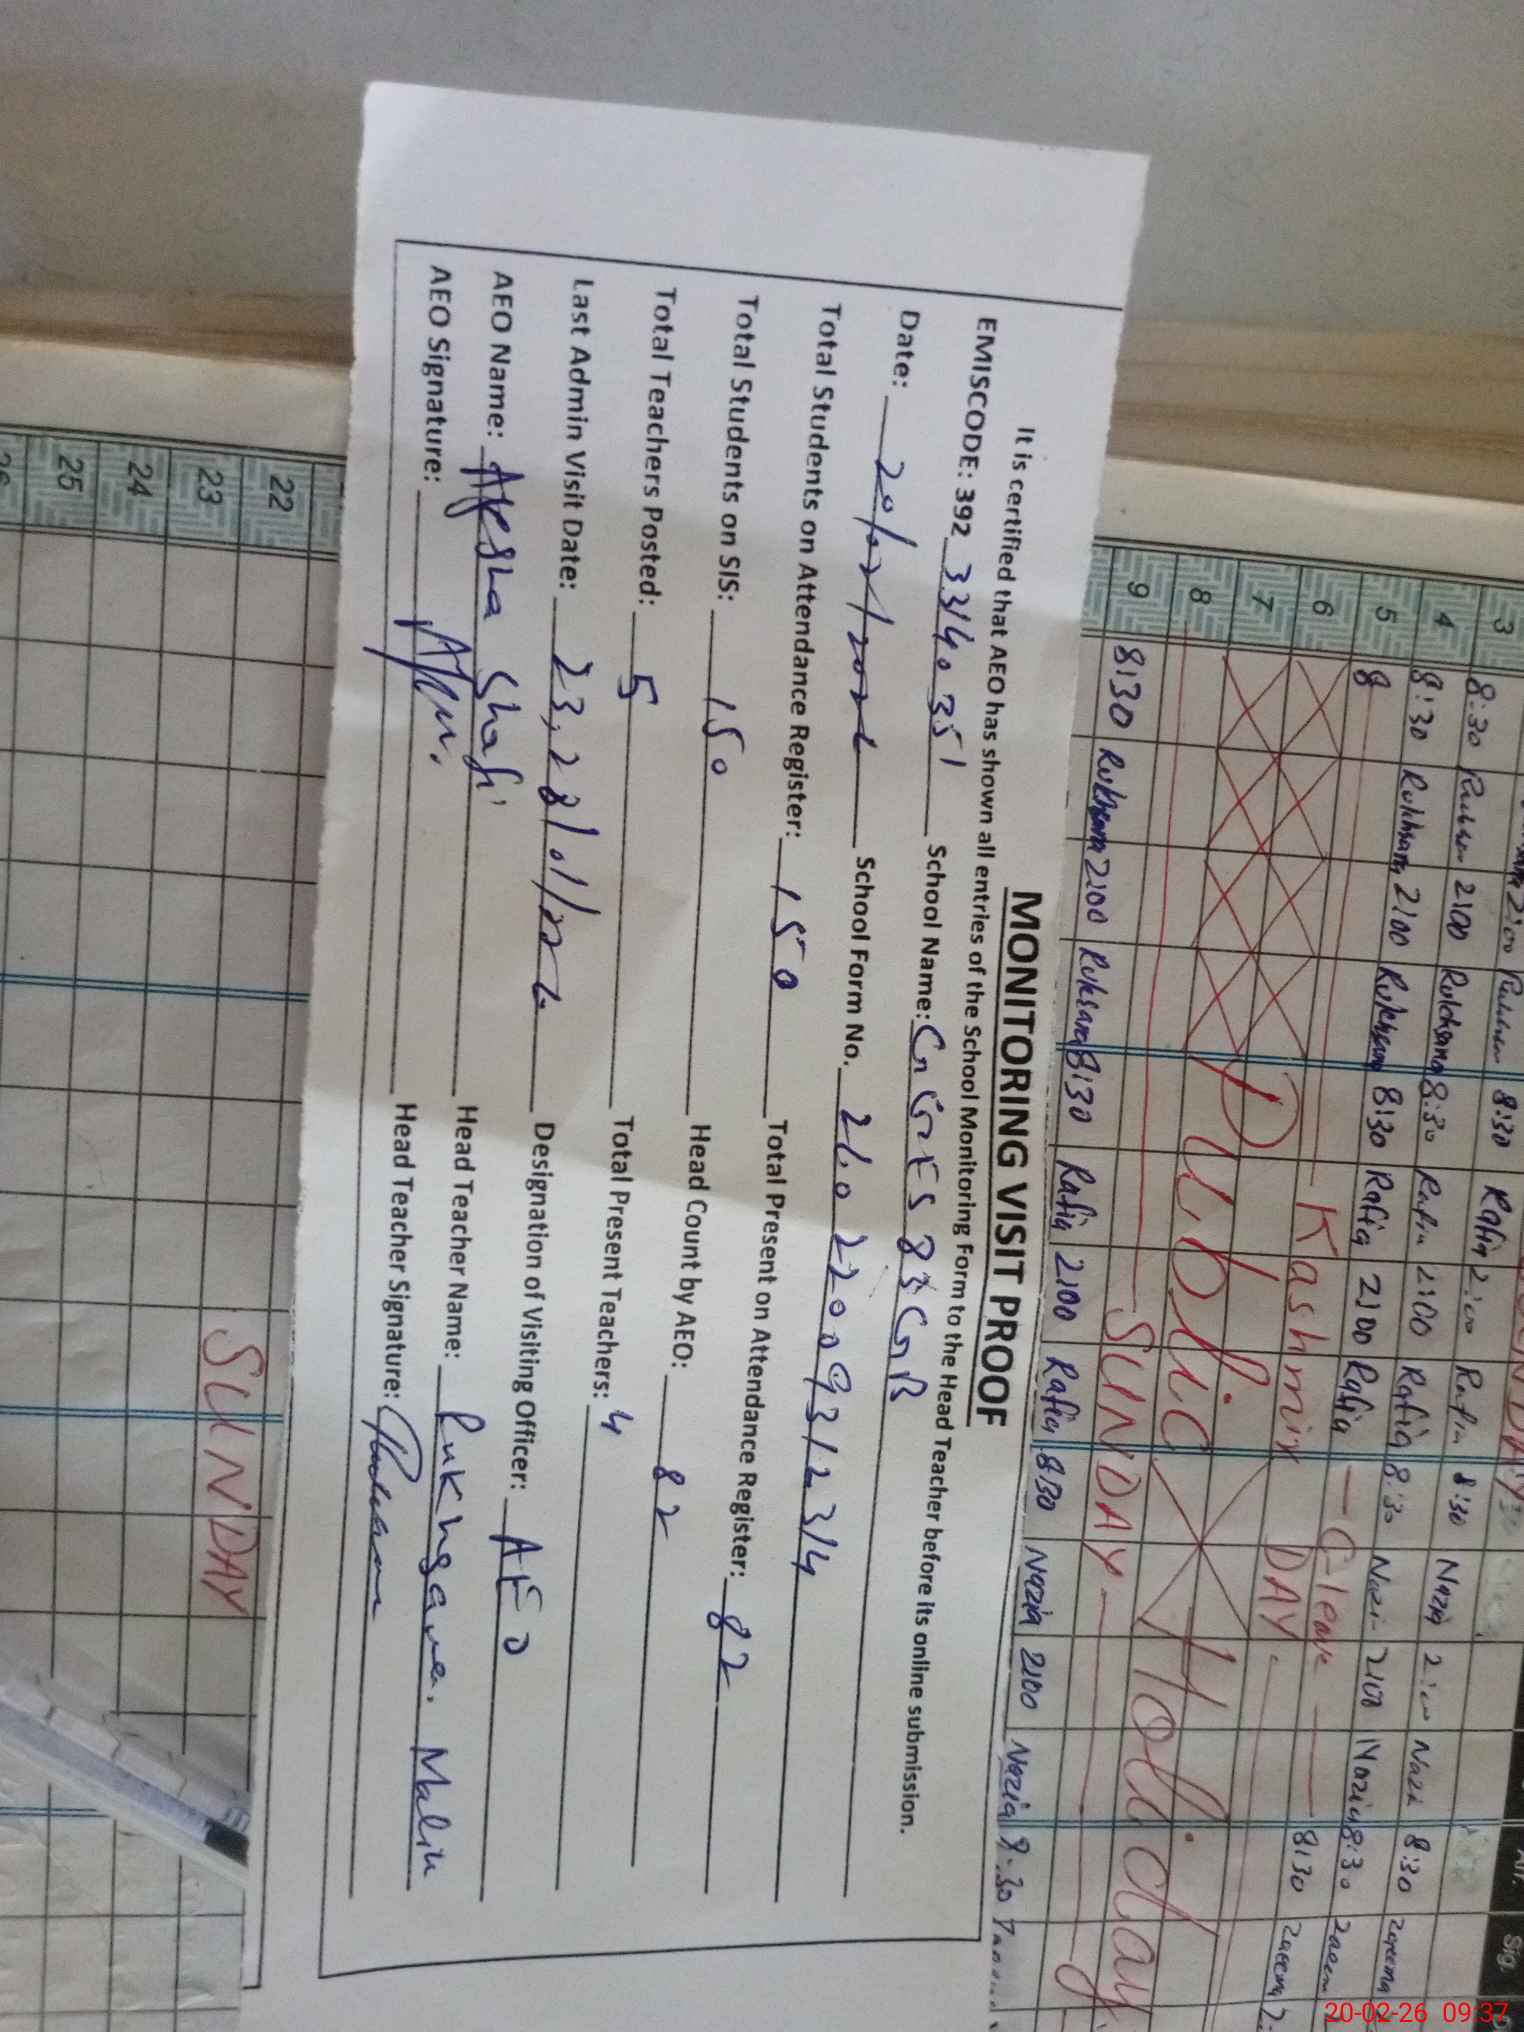 MONITORING VISIT PROOF
It is certified that AEO has shown all entries of the School Monitoring Form to the Head Teacher before its online submission.
EMISCODE: 392 3314 0 351 School Name: GGES 83 GB
Date: 20/02/2026 School Form No. 2602200931234
Total Students on Attendance Register: 150 Total Present on Attendance Register: 82
Total Students on SIS: 150 Head Count by AEO: 82
Total Teachers Posted: 5 Total Present Teachers: 4
Last Admin Visit Date: Designation of Visiting Officer: AEO
AEO Name: Ayesha Shafi Head Teacher Name: Rukhsana Malik
AEO Signature: Head Teacher Signature:
3 8:30 2:00 8:30 Rafia 2:00 8:30
4 8:30 2:00 Rukhsana 8:30 Rafia 2:00 Rafia 8:30 Nazia
5 8 Rukhsana 2:00 Rukhsana 8:30 Rafia 2:00 Rafia 8:30 2:00 8:30 Zaeema
6 Kashmir Day
7
8 Public Holiday
9 SUNDAY
8:30 Rukhsana 2:00 Ruksana 8:30 Rafia 2:00 Rafia 8:30 Nazia 2:00 Nazia
22
23 SUNDAY
24
25
26
Sig.
20-02-26 09:37